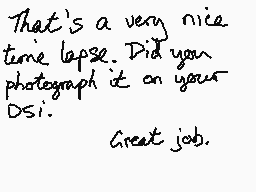 That's a very nice
time lapse. Did you
photograph it on your
DSi.
Great job.